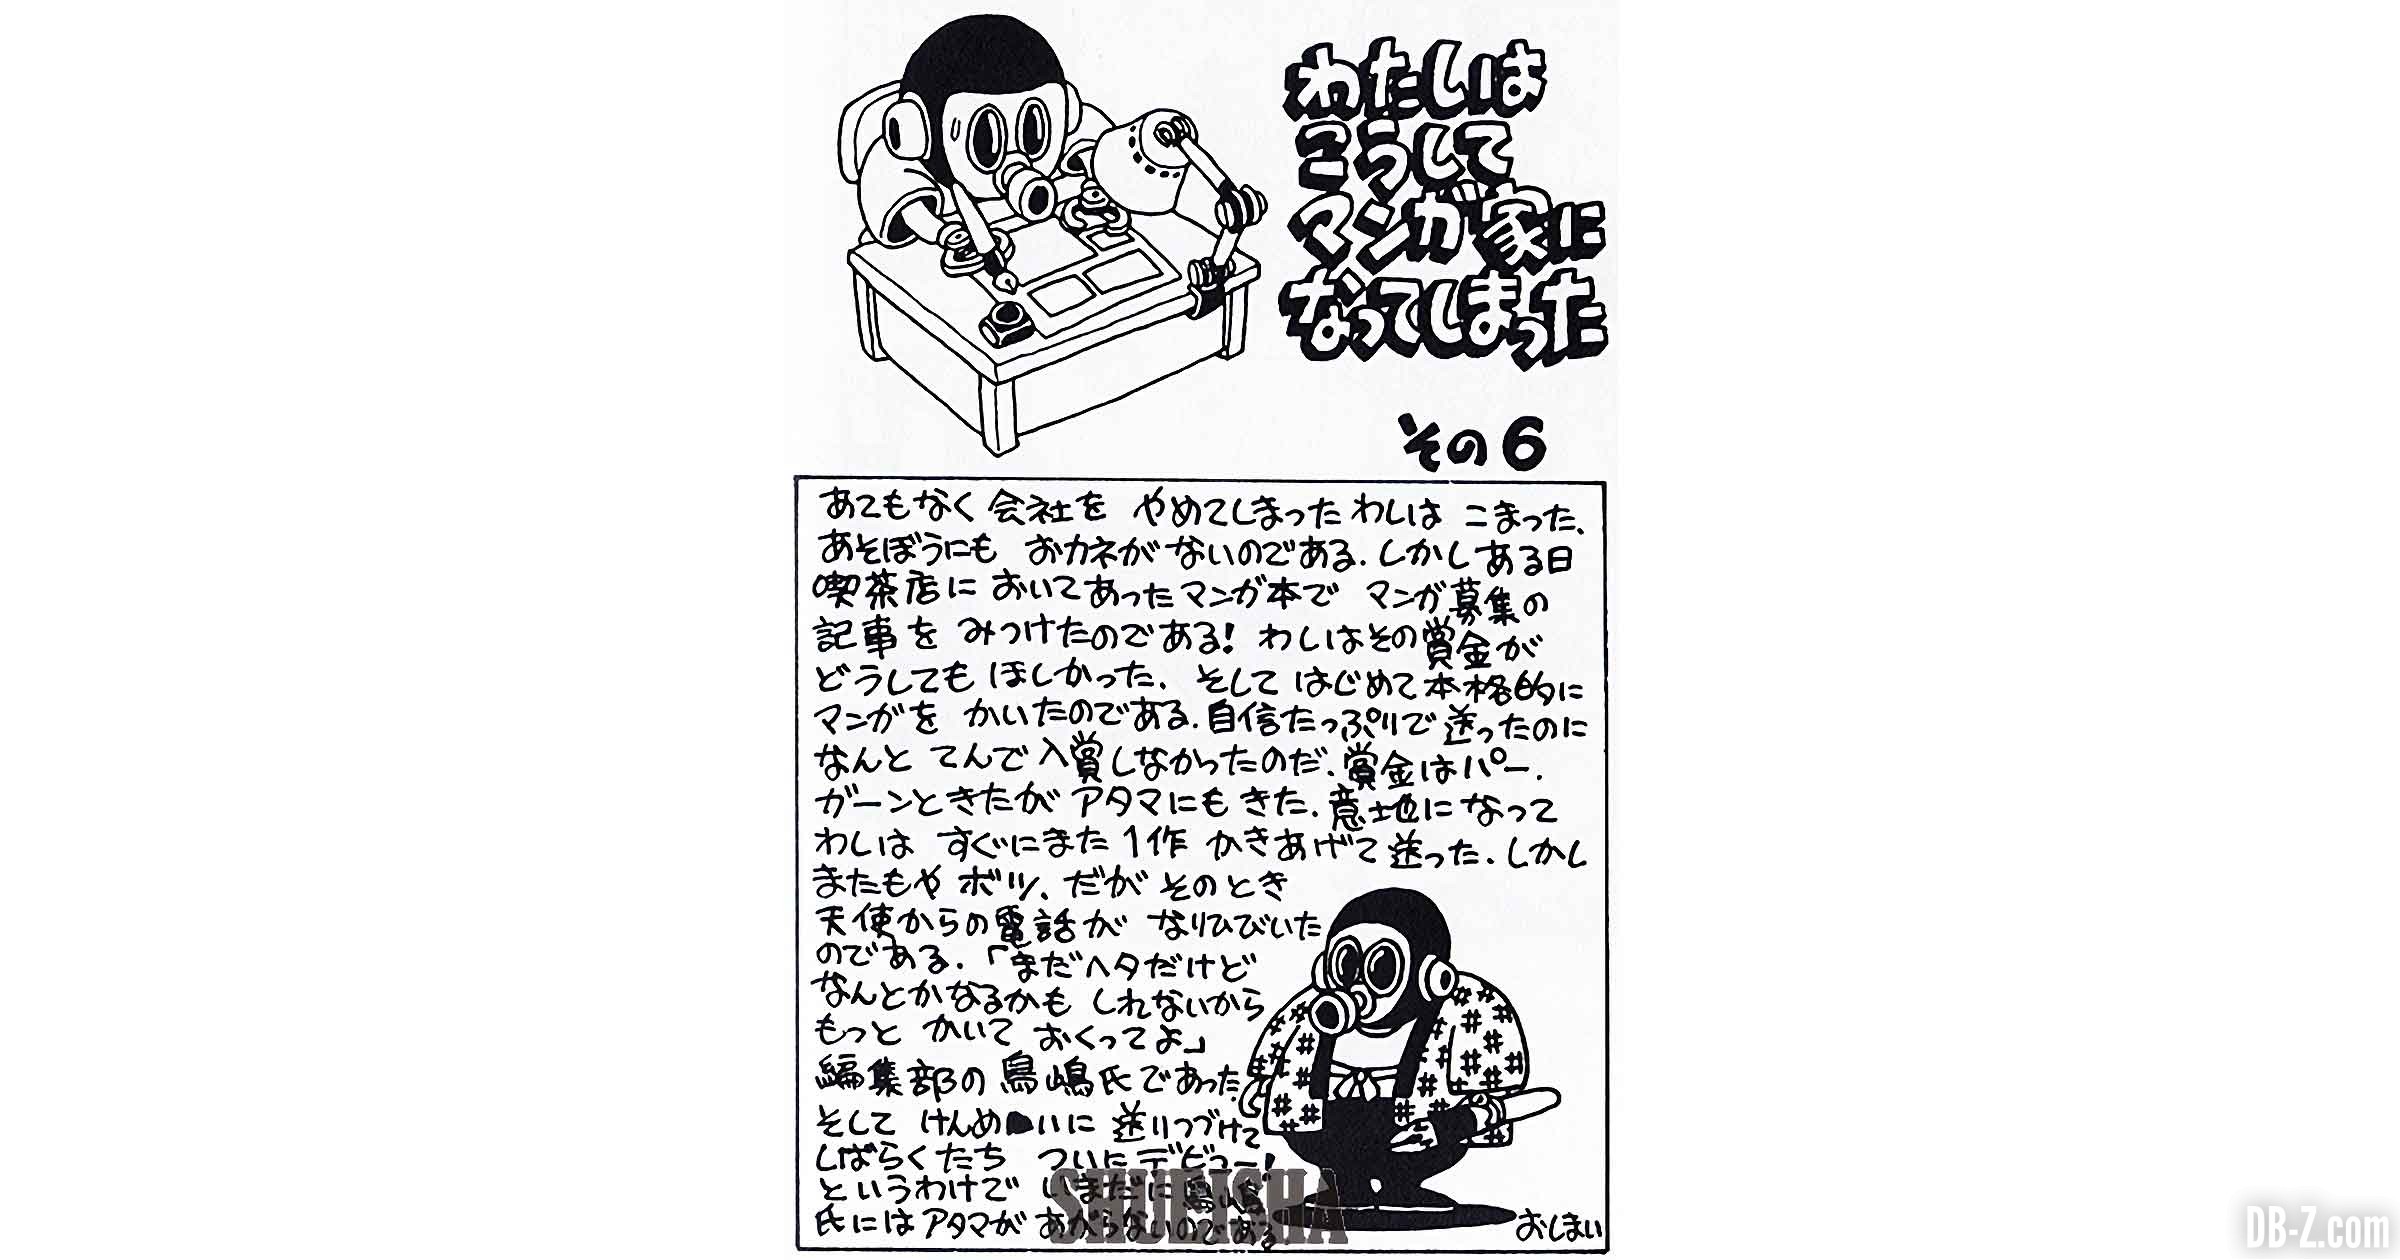 わたしは
こうして
マンガ家に
なってしまった
その6
あてもなく 会社を やめてしまった わしは こまった、
あそぼうにも おカネが ないのである. しかし ある日
喫茶店に おいてあった マンガ本で マンガ募集の
記事を みつけたのである! わしは その賞金が
どうしても ほしかった. そして はじめて 本格的に
マンガを かいたのである. 自信たっぷりで 送ったのに
なんと てんで 入賞しなかったのだ. 賞金は パー.
ガーンときたが アタマにも きた. 意地になって
わしは すぐにまた 1作 かきあげて 送った. しかし
またもや ボツ、だが そのとき
天使からの電話が なりひびいた
のである. 「まだ ヘタだけど
なんとかなるかも しれないから
もっと かいて おくってよ」
編集部の 鳥嶋氏であった.
そして けんめいに 送りつづけて
しばらくたち ついにデビュー!
というわけで いまだに 鳥嶋
氏には アタマが あがらないのである.
おしまい
SHUEISHA
DB-Z.com